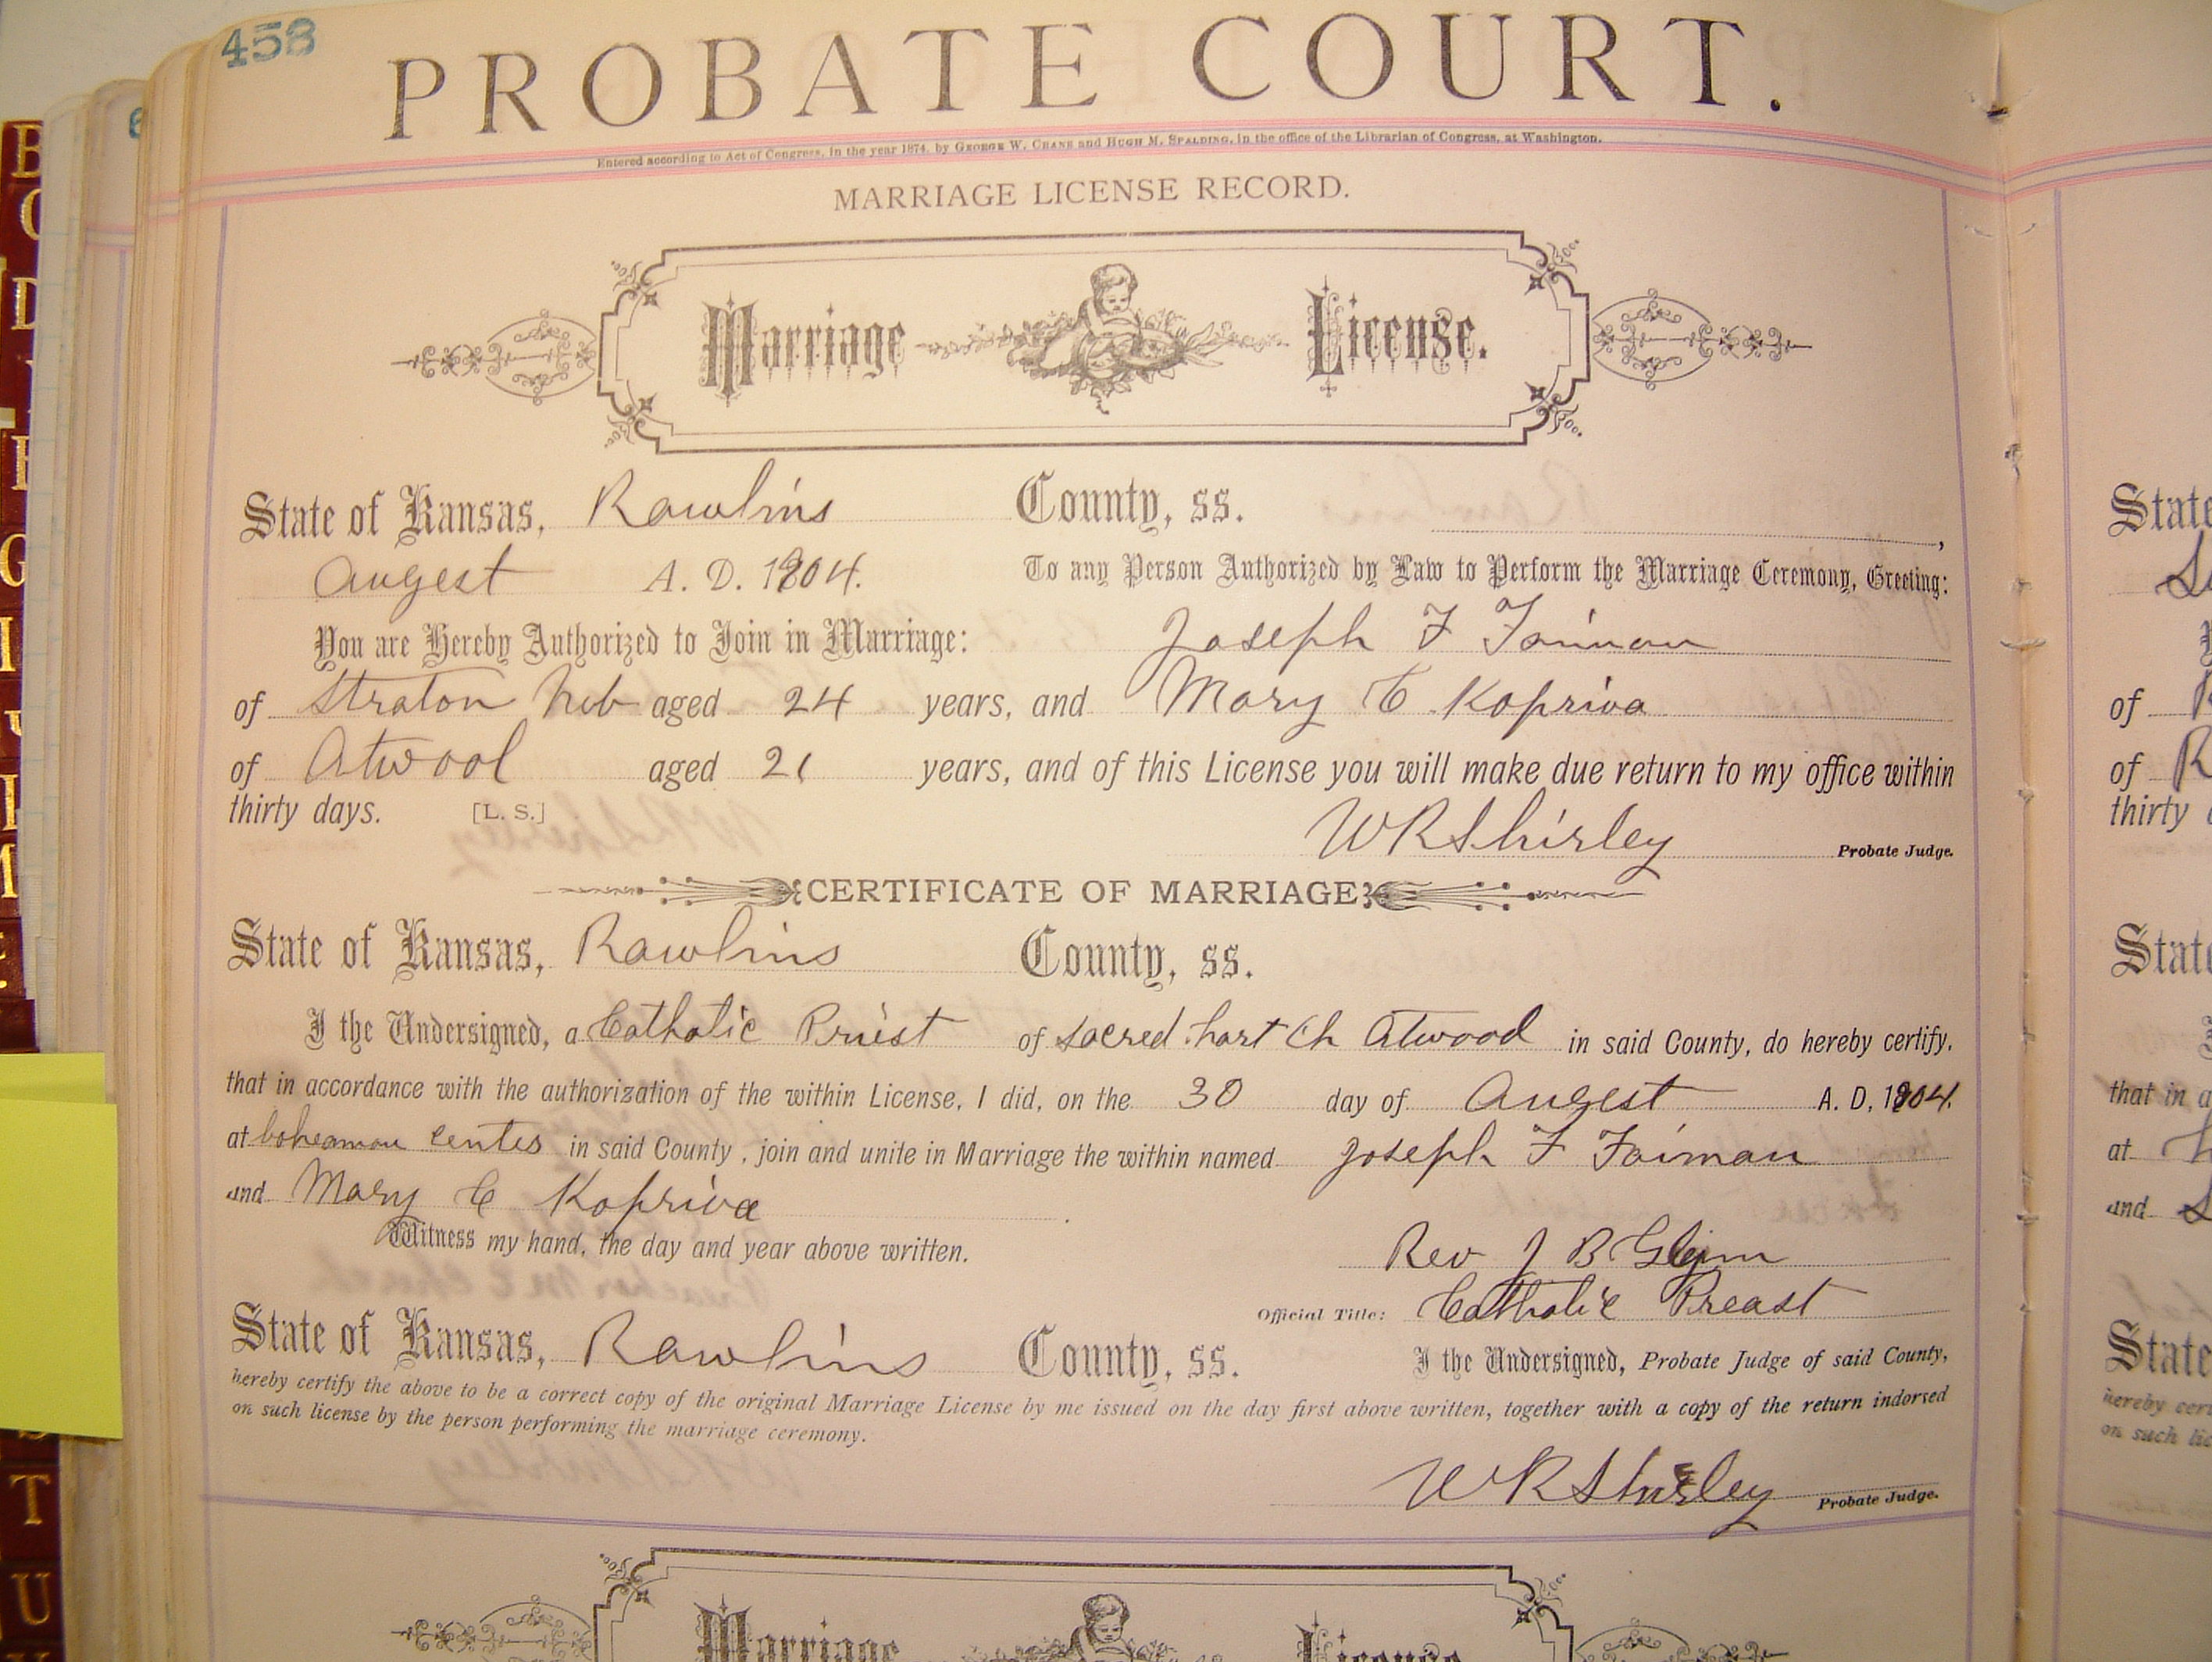 458
PROBATE COURT.
Entered according to Act of Congress, in the year 1874, by GEORGE W. CRANE and HUGH M. SPALDING, in the office of the Librarian of Congress, at Washington.
MARRIAGE LICENSE RECORD.
Marriage License.
State of Kansas, Rawlins County, ss.
Augest A. D. 1904. To any Person Authorized by Law to Perform the Marriage Ceremony, Greeting:
You are Hereby Authorized to Join in Marriage: Joseph F Faiman
of Straton Neb aged 24 years, and Mary C Kopriva
of Atwood aged 21 years, and of this License you will make due return to my office within
thirty days. [L. S.]
W R Shirley Probate Judge.
CERTIFICATE OF MARRIAGE
State of Kansas, Rawlins County, ss.
I the Undersigned, a Catholic Priest of sacred hart Ch Atwood in said County, do hereby certify,
that in accordance with the authorization of the within License, I did, on the 30 day of Augest A. D. 1904.
at boheaman center in said County, join and unite in Marriage the within named Joseph F Faiman
and Mary C Kopriva
Witness my hand, the day and year above written.
Rev J B Glynn
Official Title: Catholic Preast
State of Kansas, Rawlins County, ss. I the Undersigned, Probate Judge of said County,
hereby certify the above to be a correct copy of the original Marriage License by me issued on the day first above written, together with a copy of the return indorsed
on such license by the person performing the marriage ceremony.
W R Shirley Probate Judge.
Marriage License
State
of
of R
thirty
State
that in a
at
and
State
hereby cert
on such lic